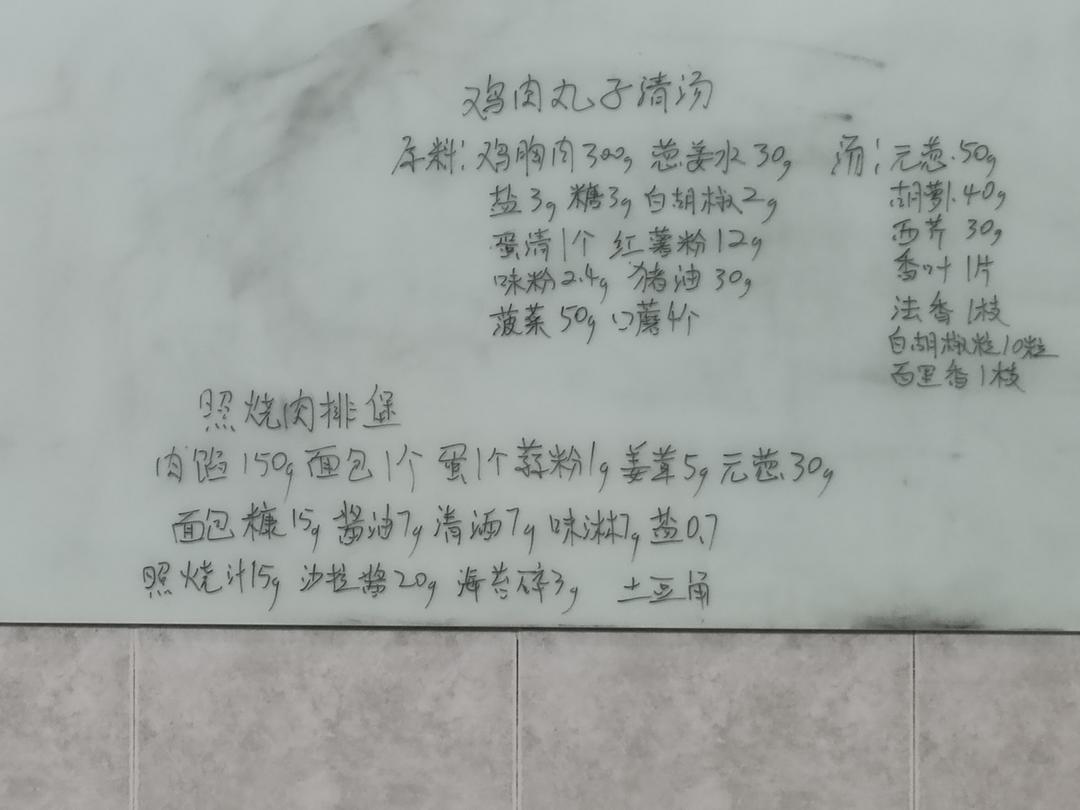 鸡肉丸子清汤
原料:鸡胸肉300g 葱姜水30g
盐3g 糖3g 白胡椒2g
蛋清1个 红薯粉12g
味粉2.4g 猪油30g
菠菜50g 口蘑4个
汤:元葱.50g
胡萝.40g
西芹 30g
香叶 1片
法香 1枝
白胡椒粒10粒
百里香1枝
照烧肉排堡
肉馅150g 面包1个 蛋1个 蒜粉1g 姜茸5g 元葱.30g
面包糠15g 酱油7g 清酒7g 味淋7g 盐0.7
照烧汁15g 沙拉酱20g 海苔碎3g 土豆角